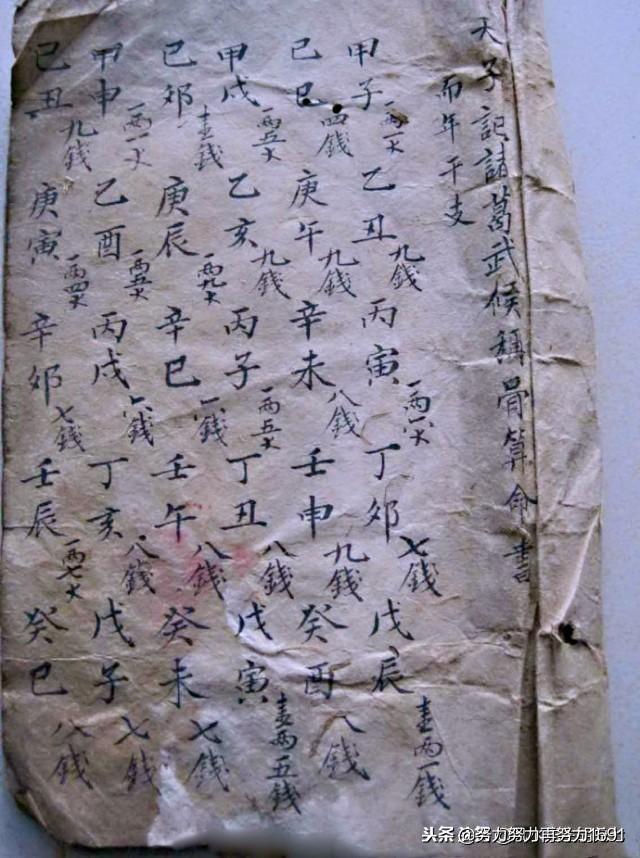 天子記諸葛武候稱骨算命書
而年干支
甲子 一两一大 乙丑 九錢 丙寅 丁卯 七錢 戊辰 壹两一錢
己巳 四錢 庚午 九錢 辛未 八錢 壬申 九錢 癸酉 八錢
甲戌 一两五大 乙亥 九錢 丙子 一两五大 丁丑 八錢 戊寅 壹两五錢
己卯 壹錢 庚辰 一两九大 辛巳 六錢 壬午 八錢 癸未 七錢
甲申 一两一大 乙酉 一两五大 丙戌 六錢 丁亥 八錢 戊子 七錢
己丑 九錢 庚寅 一两四大 辛卯 七錢 壬辰 一两七大 癸巳 八錢
头条